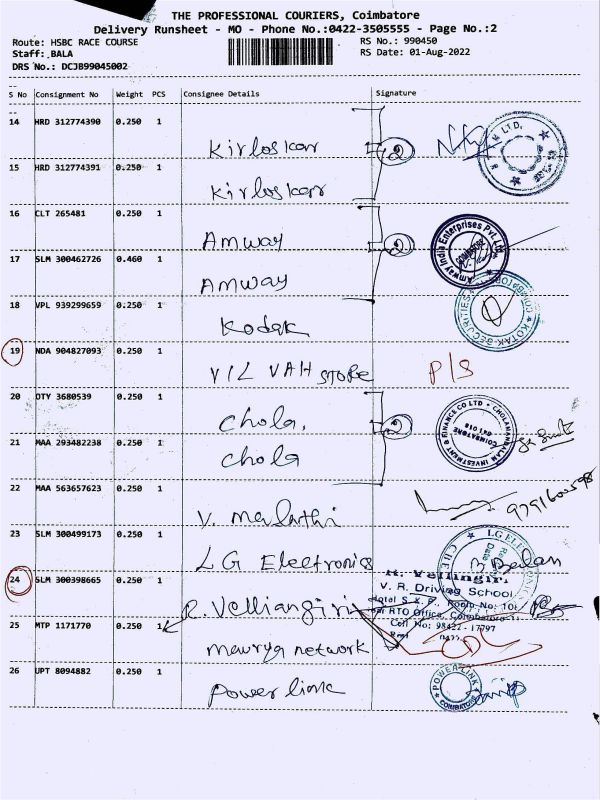 THE PROFESSIONAL COURIERS, Coimbatore
Delivery Runsheet - MO - Phone No.:0422-3505555 - Page No.:2
Route: HSBC RACE COURSE RS No.: 990450
Staff: BALA RS Date: 01-Aug-2022
DRS No.: DCJB99045002
S No Consignment No Weight PCS Consignee Details Signature
14 HRD 312774390 0.250 1
Kirloskar 2
15 HRD 312774391 0.250 1
Kirloskar
16 CLT 265481 0.250 1
Amway 2 Amway India Enterprises Pvt. Ltd.
17 SLM 300462726 0.460 1
Amway
18 VPL 939299659 0.250 1
Kodak KOTAK SECURITIES
19 NDA 904827093 0.250 1
VIL VAH STORE P/S
20 OTY 3680539 0.250 1
Chola, 2 CHOLAMANDALAM INVESTMENT & FINANCE CO LTD COIMBATORE 641 018
21 MAA 293482238 0.250 1
Chola
22 MAA 563657623 0.250 1
V. Malathi
23 SLM 300499173 0.250 1
LG Electronics
24 SLM 300398665 0.250 1
R. Velliangiri R. Vellingiri,
V. R. Driving School
Room No: 10
RTO Office, Coimbatore
Cell No: 98422 - 17797
25 MTP 1171770 0.250 1
maurya network
26 UPT 8094882 0.250 1
Power link POWER LINK COIMBATORE